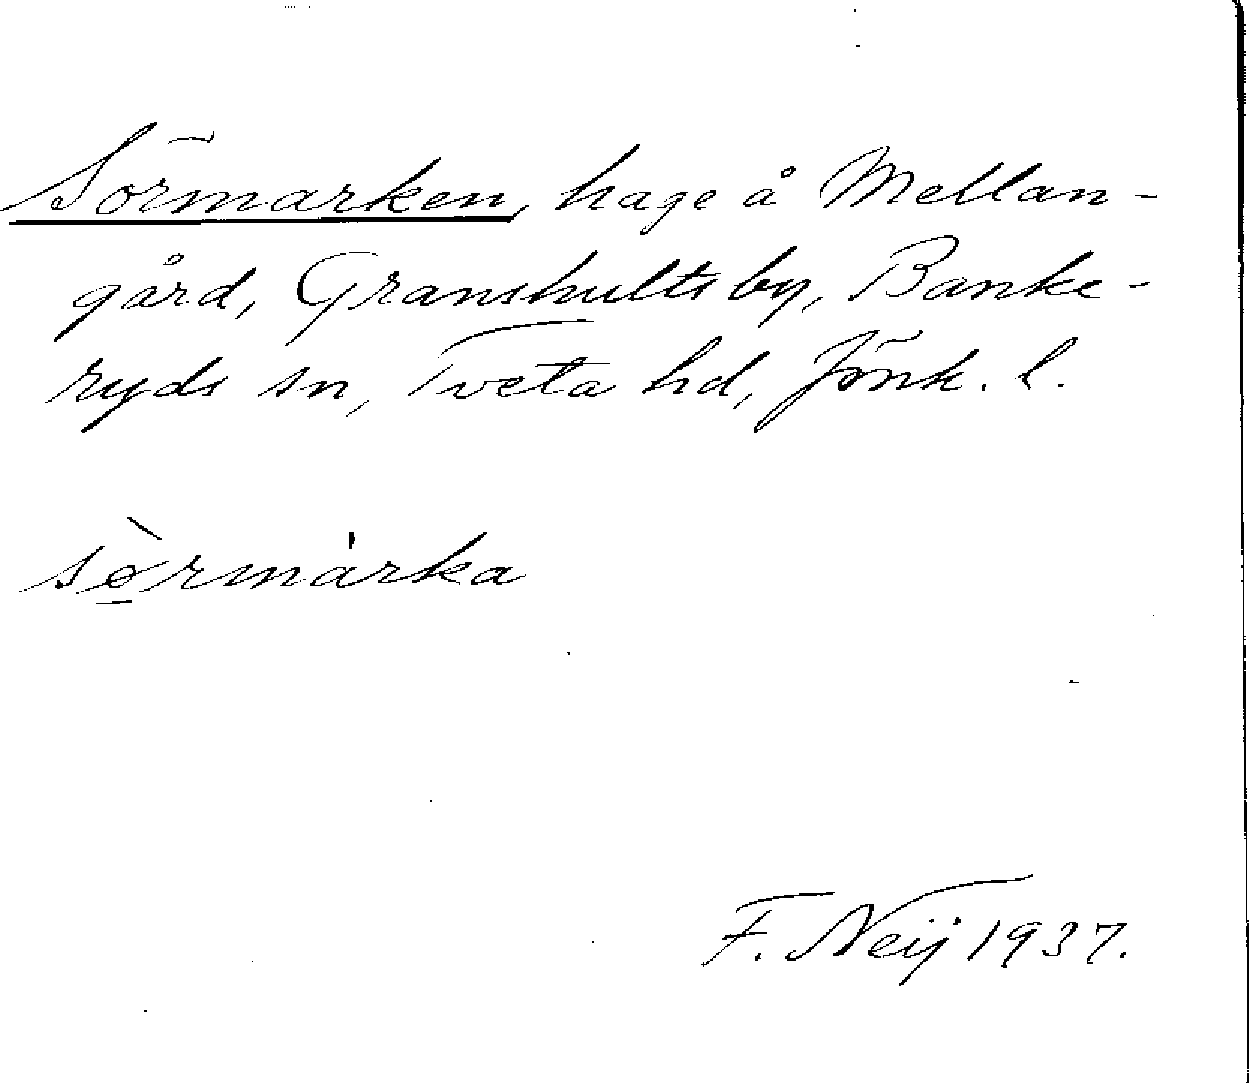 Sörmarken, hage å Mellan-
gård, Granshults by, Banke-
ryds sn, Tveta hd, Jönk. l.
sø̀rmárka
F. Neij 1937.